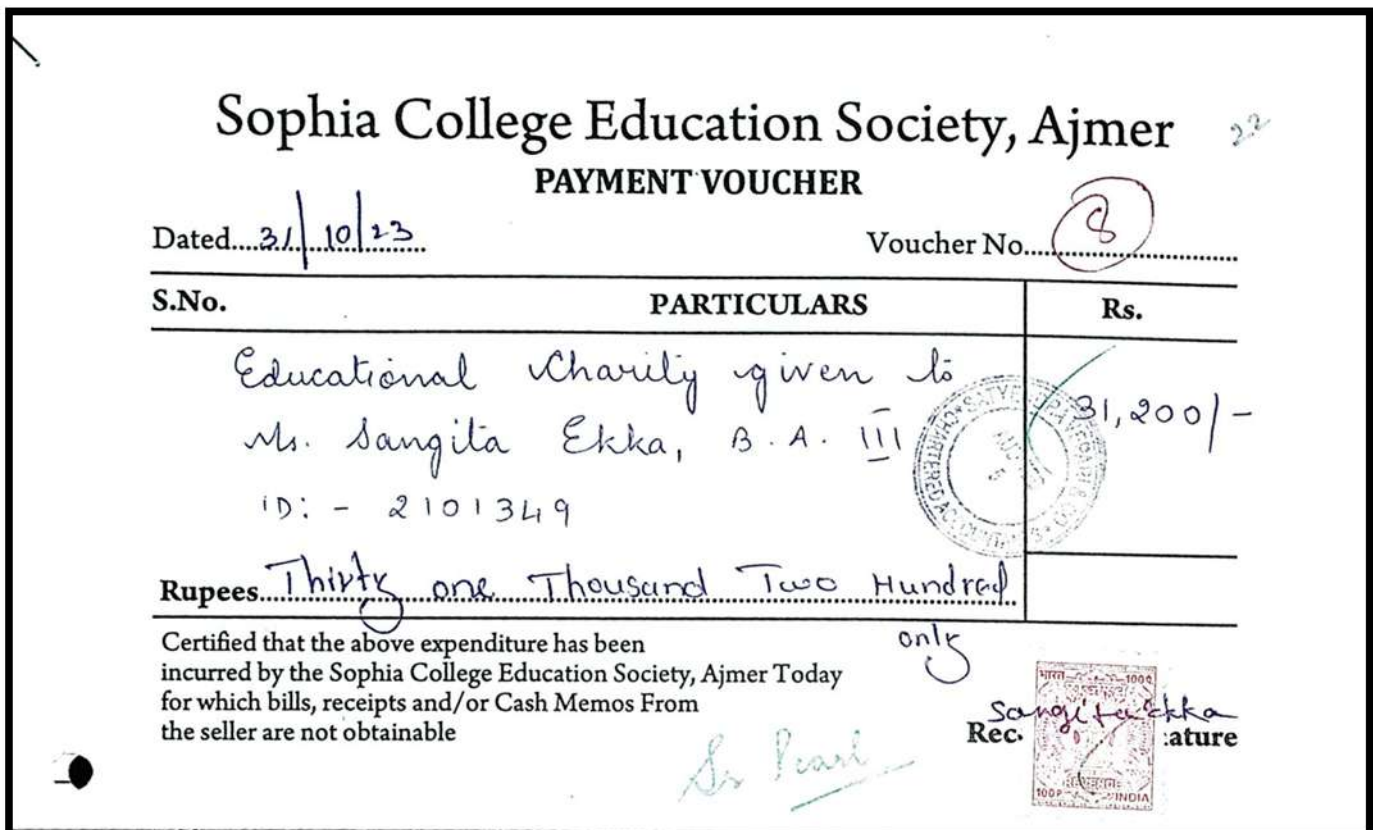 Sophia College Education Society, Ajmer
22
PAYMENT VOUCHER
Dated....31/10/23
Voucher No....8
S.No. PARTICULARS Rs.
Educational Charity given to
Ms. Sangita Ekka, B.A. III
31,200/-
ID: - 2101349
CHARTERED ACCOUNTANTS
Rupees...Thirty one Thousand Two Hundred
only
Certified that the above expenditure has been
incurred by the Sophia College Education Society, Ajmer Today
for which bills, receipts and/or Cash Memos From
the seller are not obtainable
भारत 100P
Sangita Ekka
Rec. :ature
Sr Pearl
REVENUE
100P INDIA